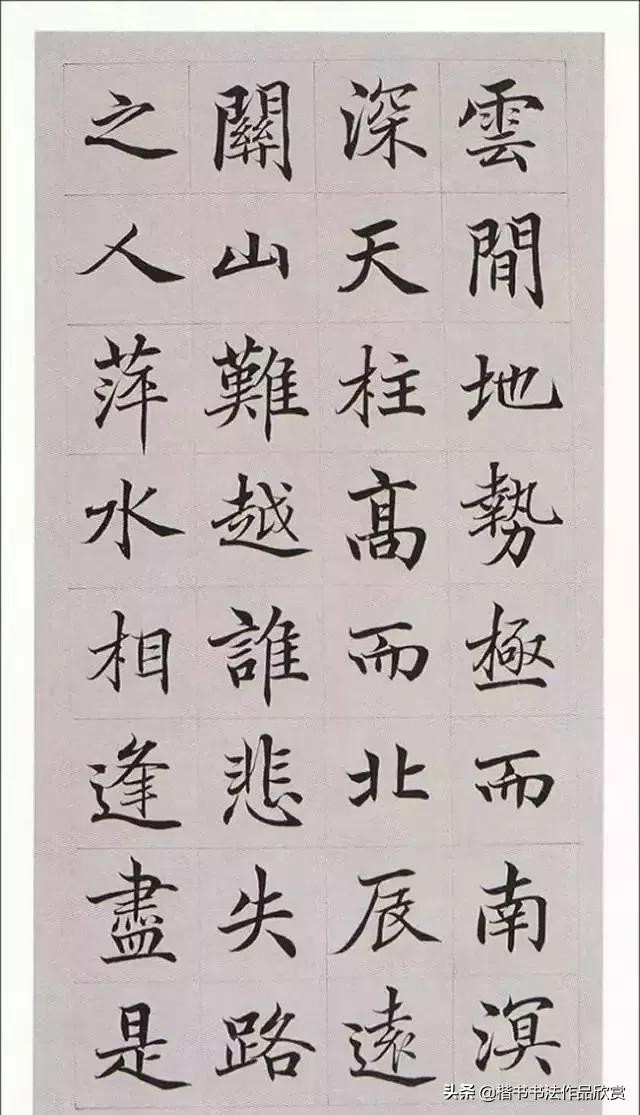 雲間地勢極而南溟
深天柱高而北辰遠
關山難越誰悲失路
之人萍水相逢盡是
头条 @楷书书法作品欣赏